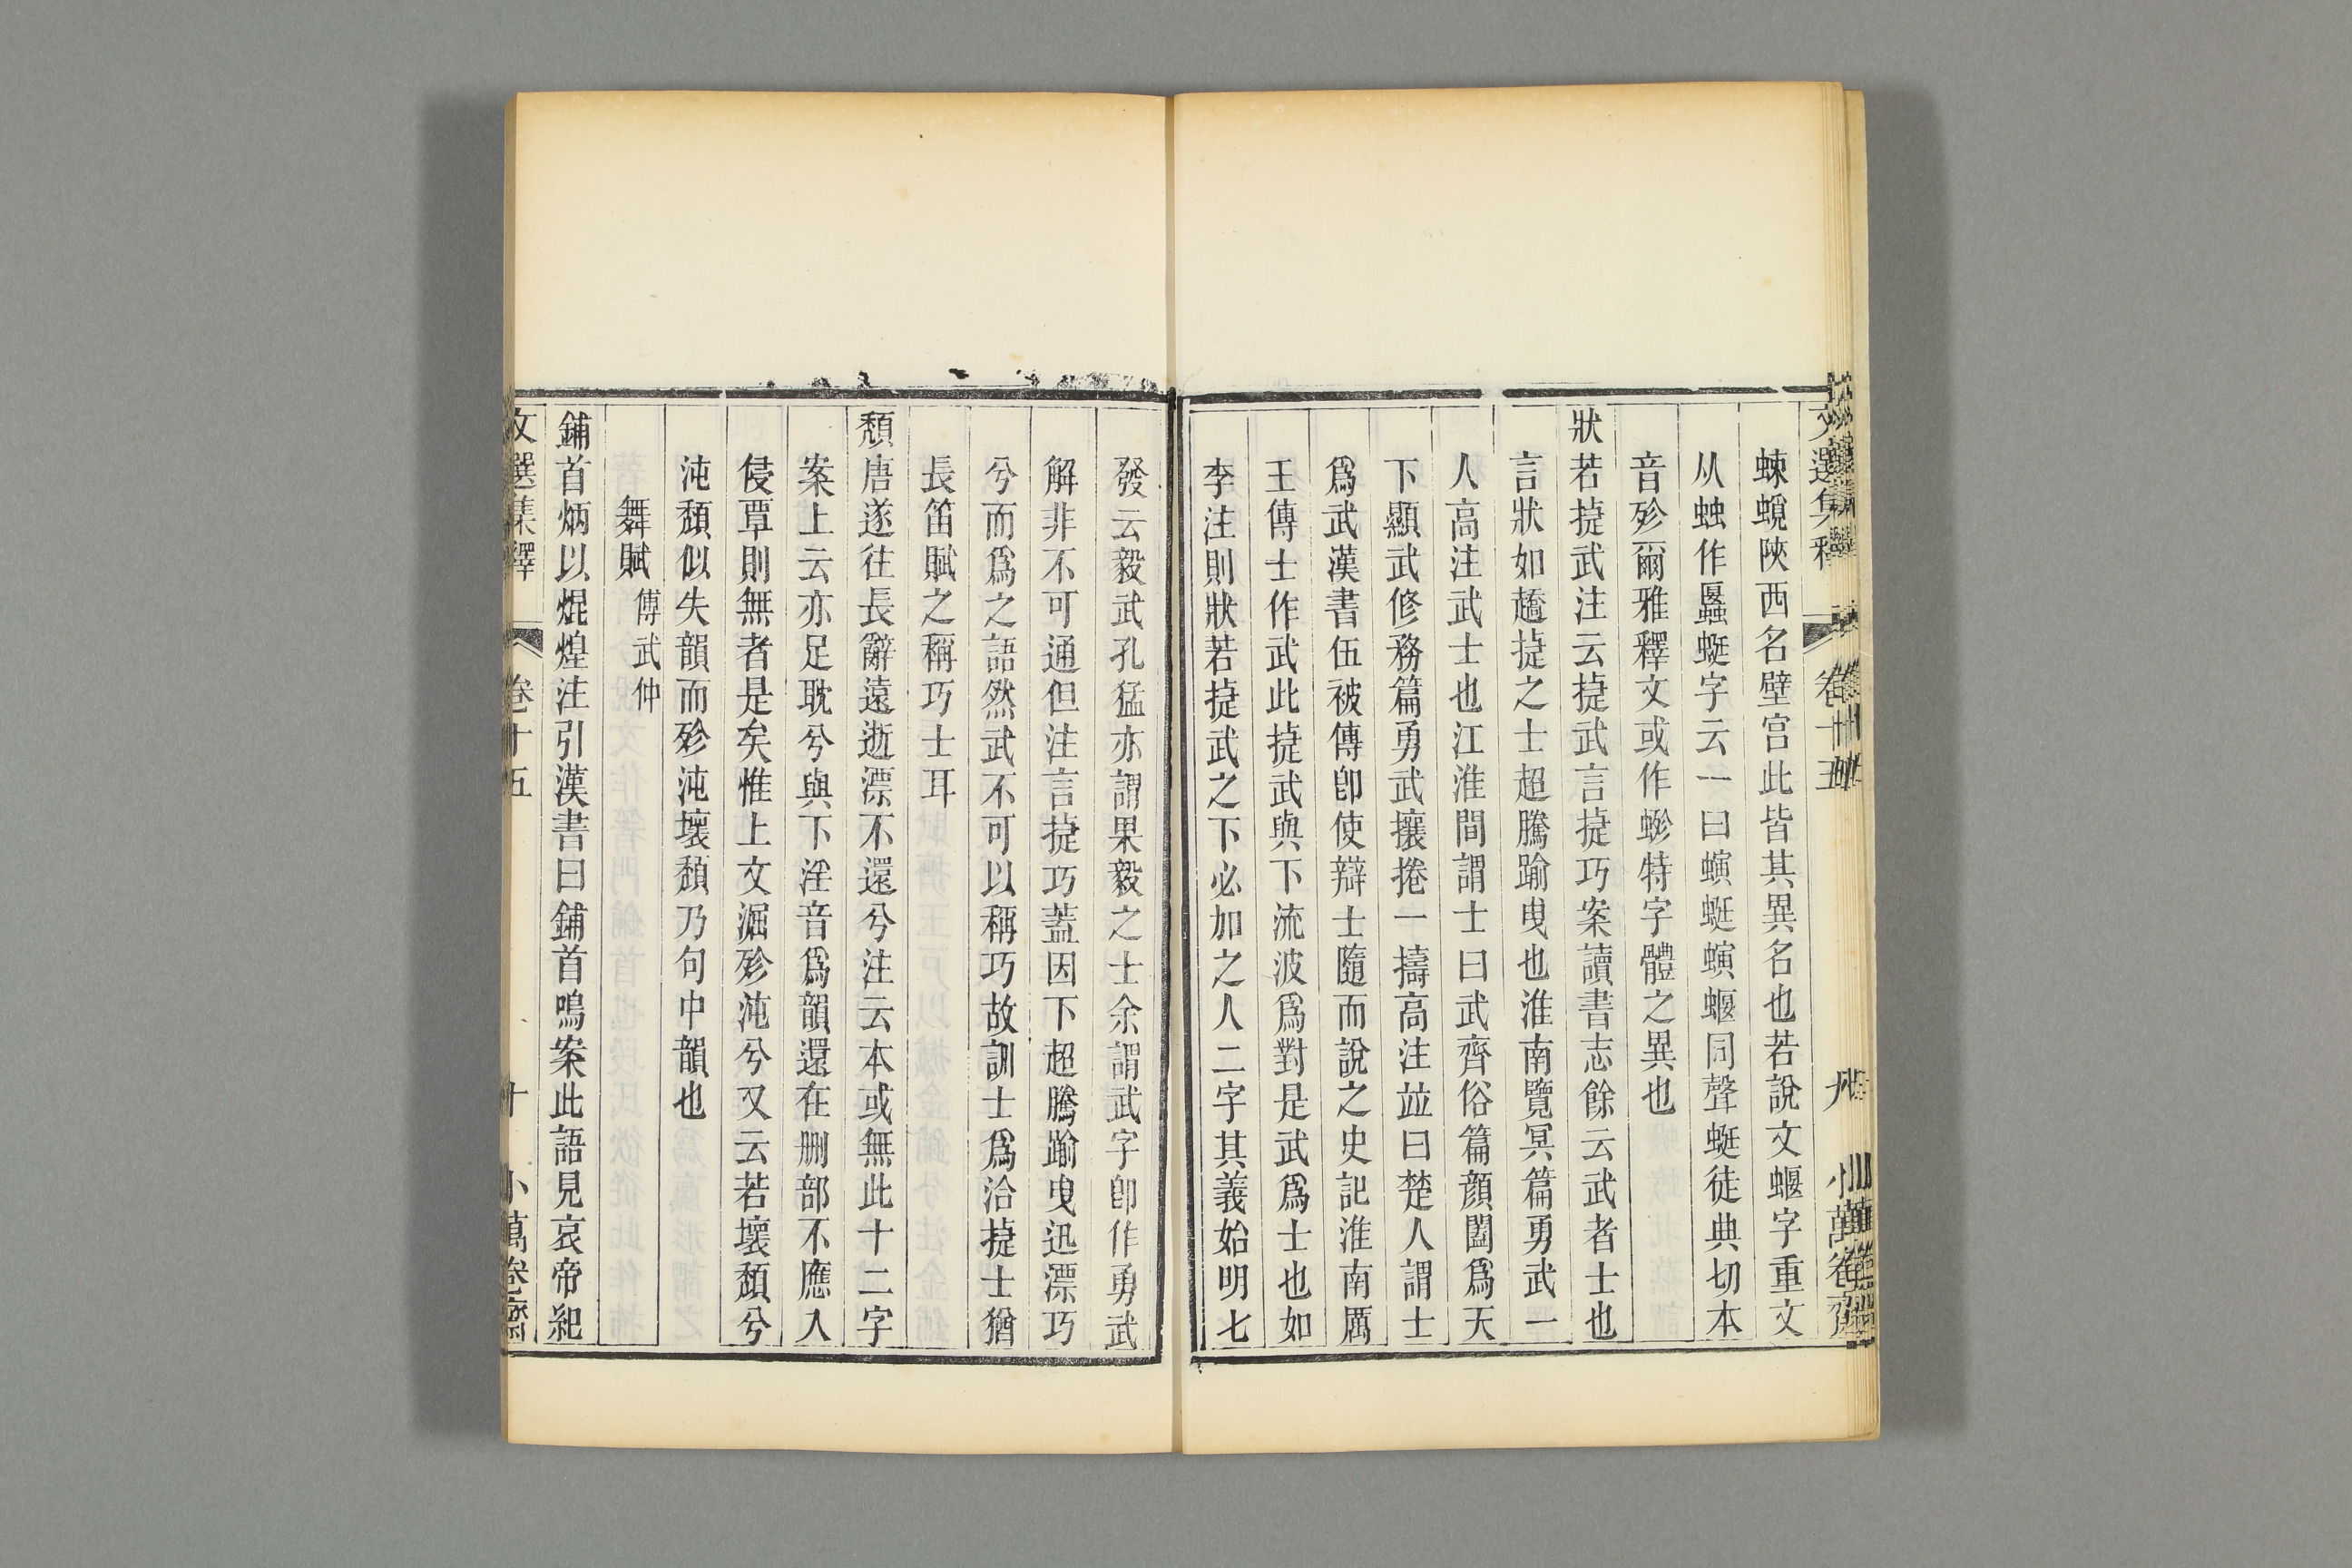 文選集釋 卷十五 九 小萬卷齋
蝀蜺陝西名壁宫此皆其異名也若說文蝘字重文
从䖵作𧖅蜓字云一曰螾蜓螾蝘同聲蜓徒典切本
音殄爾雅釋文或作蝘特字體之異也
狀若㨗武注云㨗武言㨗巧案讀書志餘云武者士也
言狀如趫㨗之士超騰踰曳也淮南覽冥篇勇武一
人高注武士也江淮間謂士曰武齊俗篇顏闔爲天
下顯武修務篇勇武攘捲一擣高注竝曰楚人謂士
爲武漢書伍被傳卽使辯士隨而說之史記淮南厲
王傳士作武此㨗武與下流波爲對是武爲士也如
李注則狀若㨗武之下必加之人二字其義始明七
發云毅武孔猛亦謂果毅之士余謂武字卽作勇武
解非不可通但注言㨗巧蓋因下超騰踰曳迅漂巧
兮而爲之語然武不可以稱巧故訓士爲洽㨗士猶
長笛賦之稱巧士耳
頹唐遂往長辭遠逝漂不還兮注云本或無此十二字
案上云亦足耽兮與下淫音爲韻還在删部不應入
侵覃則無者是矣惟上文漚殄沌兮又云若壞頹兮
沌頹似失韻而殄沌壞頹乃句中韻也
舞賦 傅武仲
鋪首炳以焜煌注引漢書曰鋪首鳴案此語見哀帝紀
文選集釋 卷十五 十 小萬卷齋